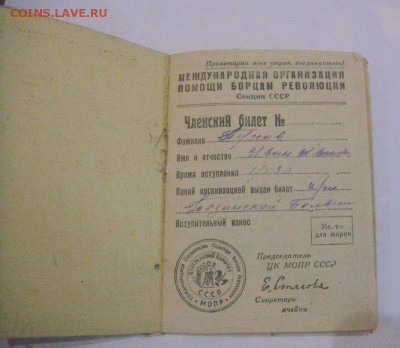 COINS.LAVE.RU
Пролетарии всех стран, соединяйтесь!
МЕЖДУНАРОДНАЯ ОРГАНИЗАЦИЯ
ПОМОЩИ БОРЦАМ РЕВОЛЮЦИИ
Секция СССР
Членский билет №
Фамилия
Имя и отчество Иван
Время вступления
Какой организацией выдан билет
Вступительный взнос
Место
для марки
Председатель
ЦК МОПР СССР
Е. Стасова
Секретарь
ячейки
СССР
МОПР